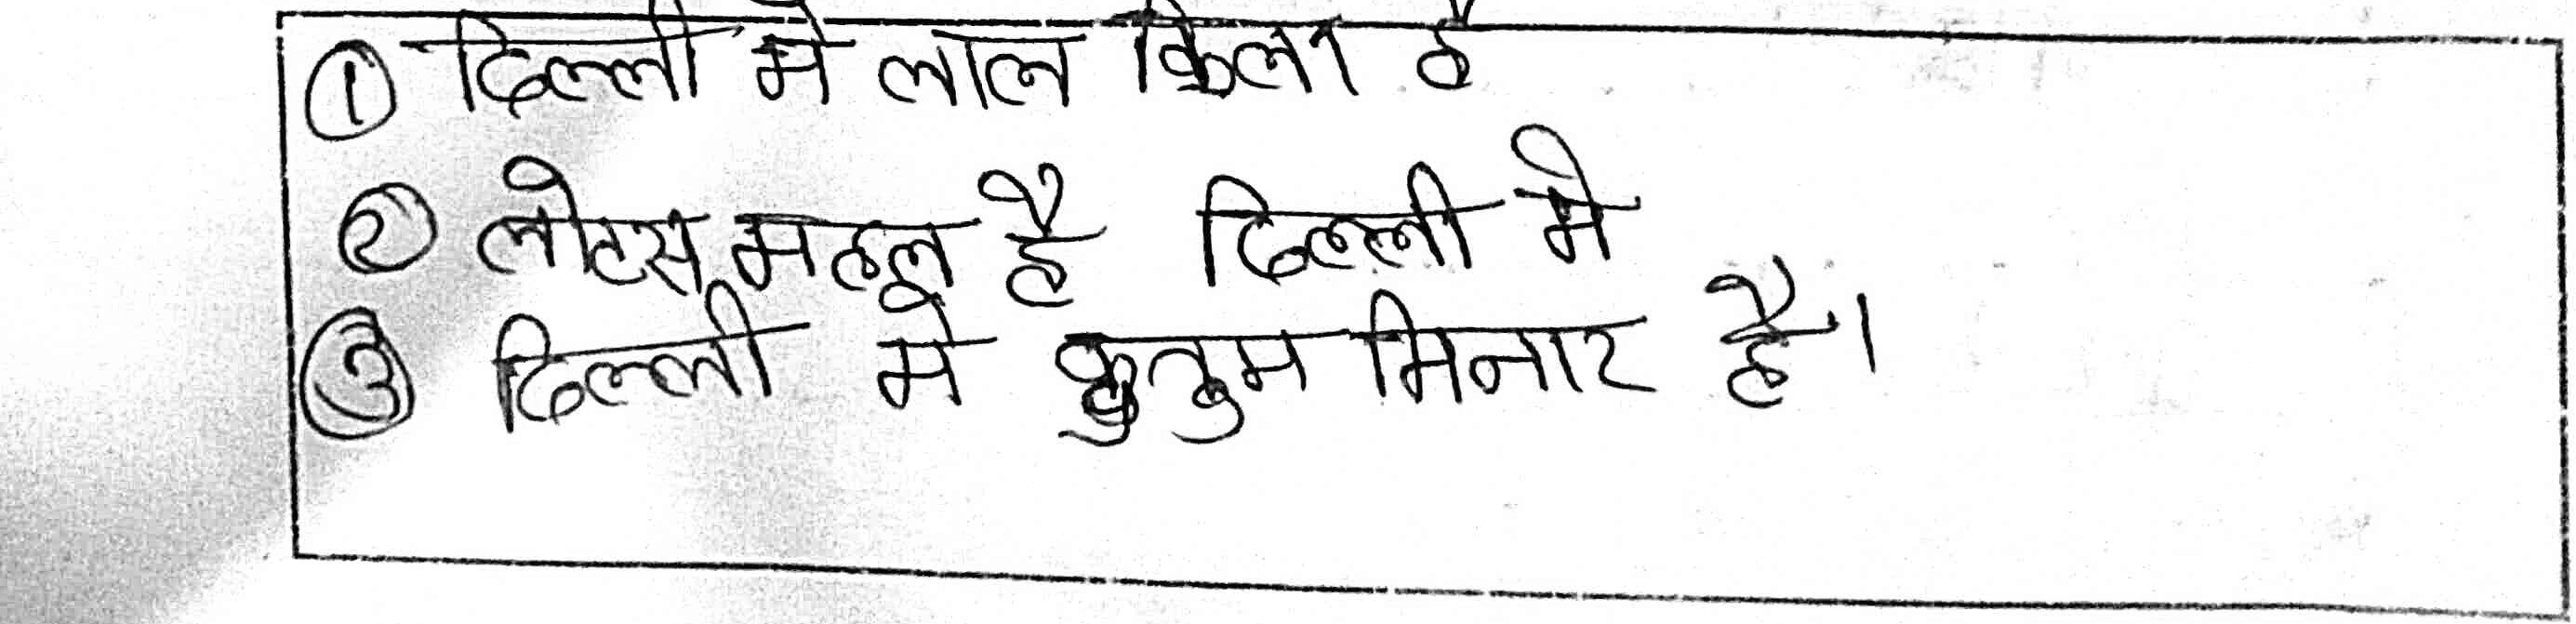 ① दिल्ली में लाल किला है
② लोटस महल है दिल्ली मे
③ दिल्ली मे कुतुम मिनार है।